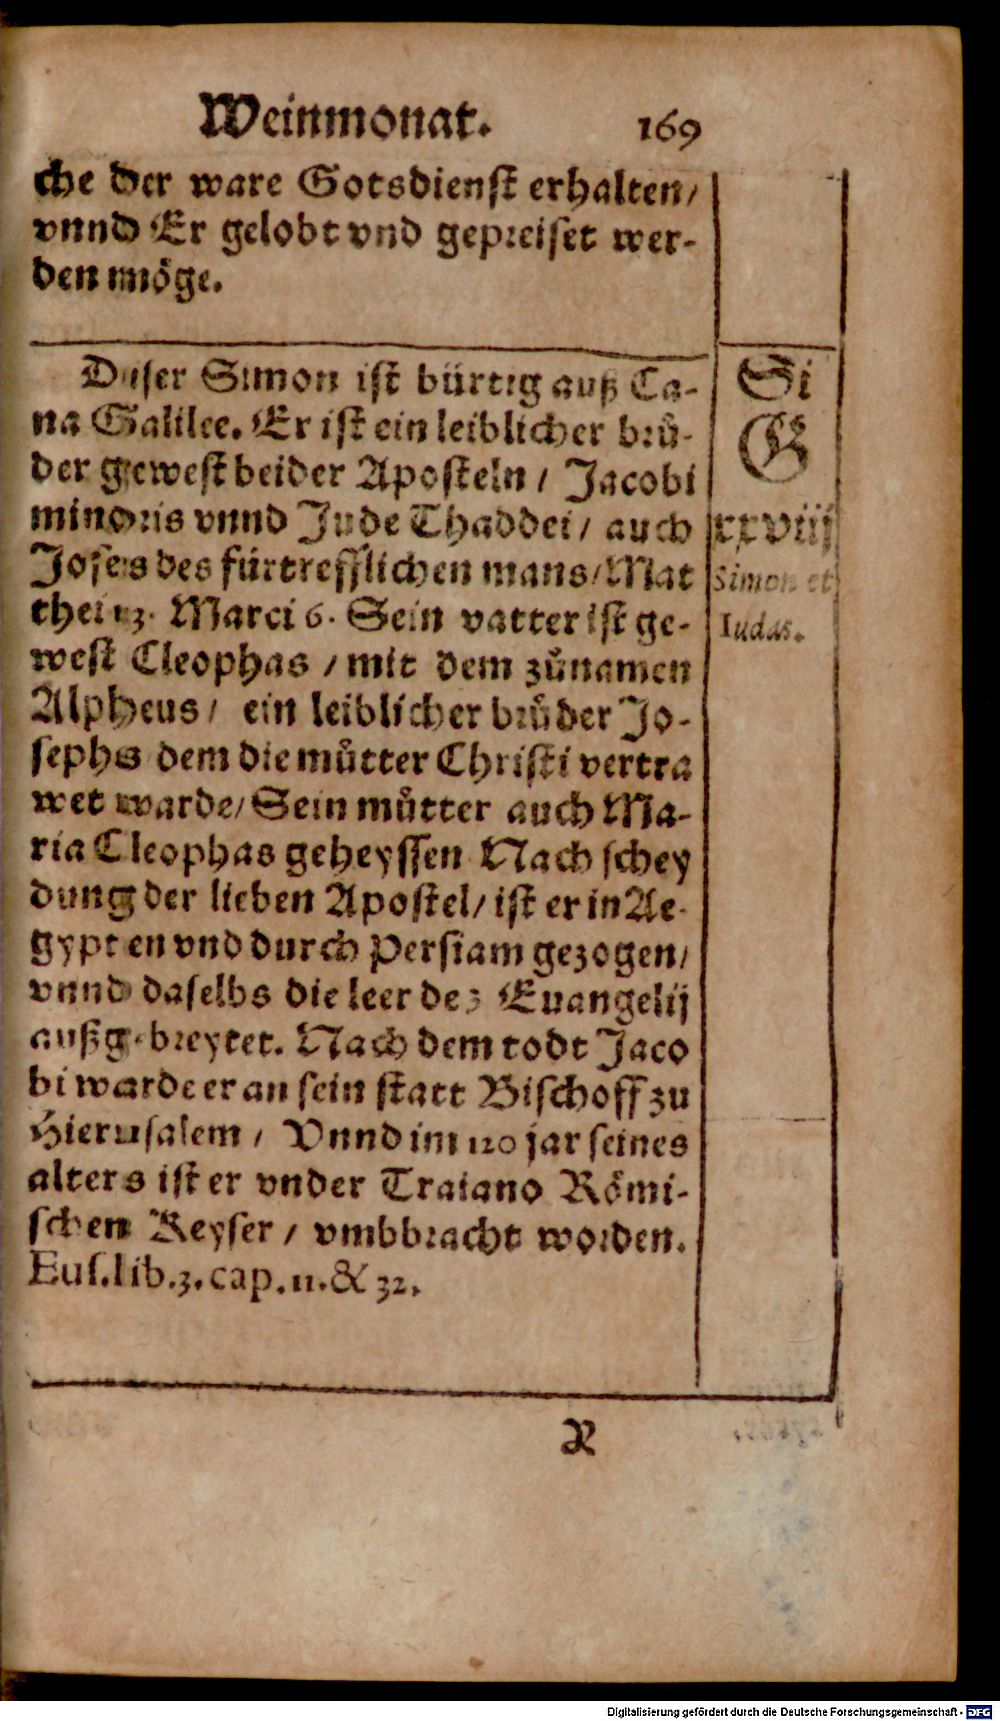 Weinmonat. 169
che der ware Gotsdienst erhalten/
vnnd Er gelobt vnd gepreiset wer-
den möge.
Diser Simon ist bürtig auß Ca-
na Galilee. Er ist ein leiblicher brů-
der gewest beider Aposteln / Jacobi
minoris vnnd Jude Thaddei / auch
Joses des fürtrefflichen mans / Mat
thei 13. Marci 6. Sein vatter ist ge-
west Cleophas / mit dem zůnamen
Alpheus / ein leiblicher brůder Jo-
sephs dem die můtter Christi vertra
wet warde / Sein můtter auch Ma-
ria Cleophas geheyssen Nach schey
dung der lieben Apostel / ist er in Ae-
gypten vnd durch Persiam gezogen /
vnnd daselbs die leer dez Euangelij
außgebreytet. Nach dem todt Jaco
bi warde er an sein statt Bischoff zu
Hierusalem / Vnnd im 120 jar seines
alters ist er vnder Traiano Römi-
schen Keyser / vmbbracht worden.
Eus. lib. 3. cap. 11. & 32.
Si
G
xxviij
Simon et
Iudas.
X
Digitalisierung gefördert durch die Deutsche Forschungsgemeinschaft - DFG